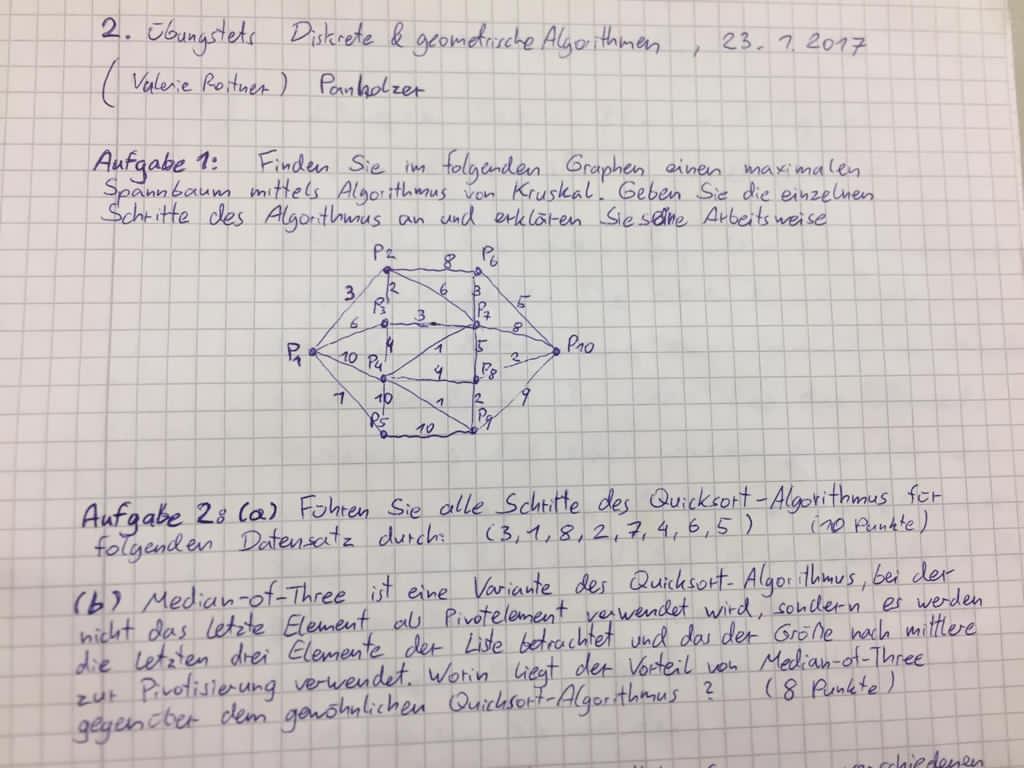 2. Übungstets Diskrete & geometrische Algorithmen, 23.1.2017
(Valerie Roitner) Panholzer
Aufgabe 1: Finden Sie im folgenden Graphen einen maximalen
Spannbaum mittels Algorithmus von Kruskal. Geben Sie die einzelnen
Schritte des Algorithmus an und erklären Sie seine Arbeitsweise
P2 8 P6
3 2 6 3 5
P3 P7
6 3 8
P1 4 5 P10
10 P4 1 P8 3
4
7 10 1 2 9
P5 P9
10
Aufgabe 2: (a) Führen Sie alle Schritte des Quicksort-Algorithmus für
folgenden Datensatz durch: (3, 1, 8, 2, 7, 4, 6, 5) (10 Punkte)
(b) Median-of-Three ist eine Variante des Quicksort-Algorithmus, bei der
nicht das letzte Element als Pivotelement verwendet wird, sondern es werden
die letzten drei Elemente der Liste betrachtet und das der Größe nach mittlere
zur Pivotisierung verwendet. Worin liegt der Vorteil von Median-of-Three
gegenüber dem gewöhnlichen Quicksort-Algorithmus? (8 Punkte)